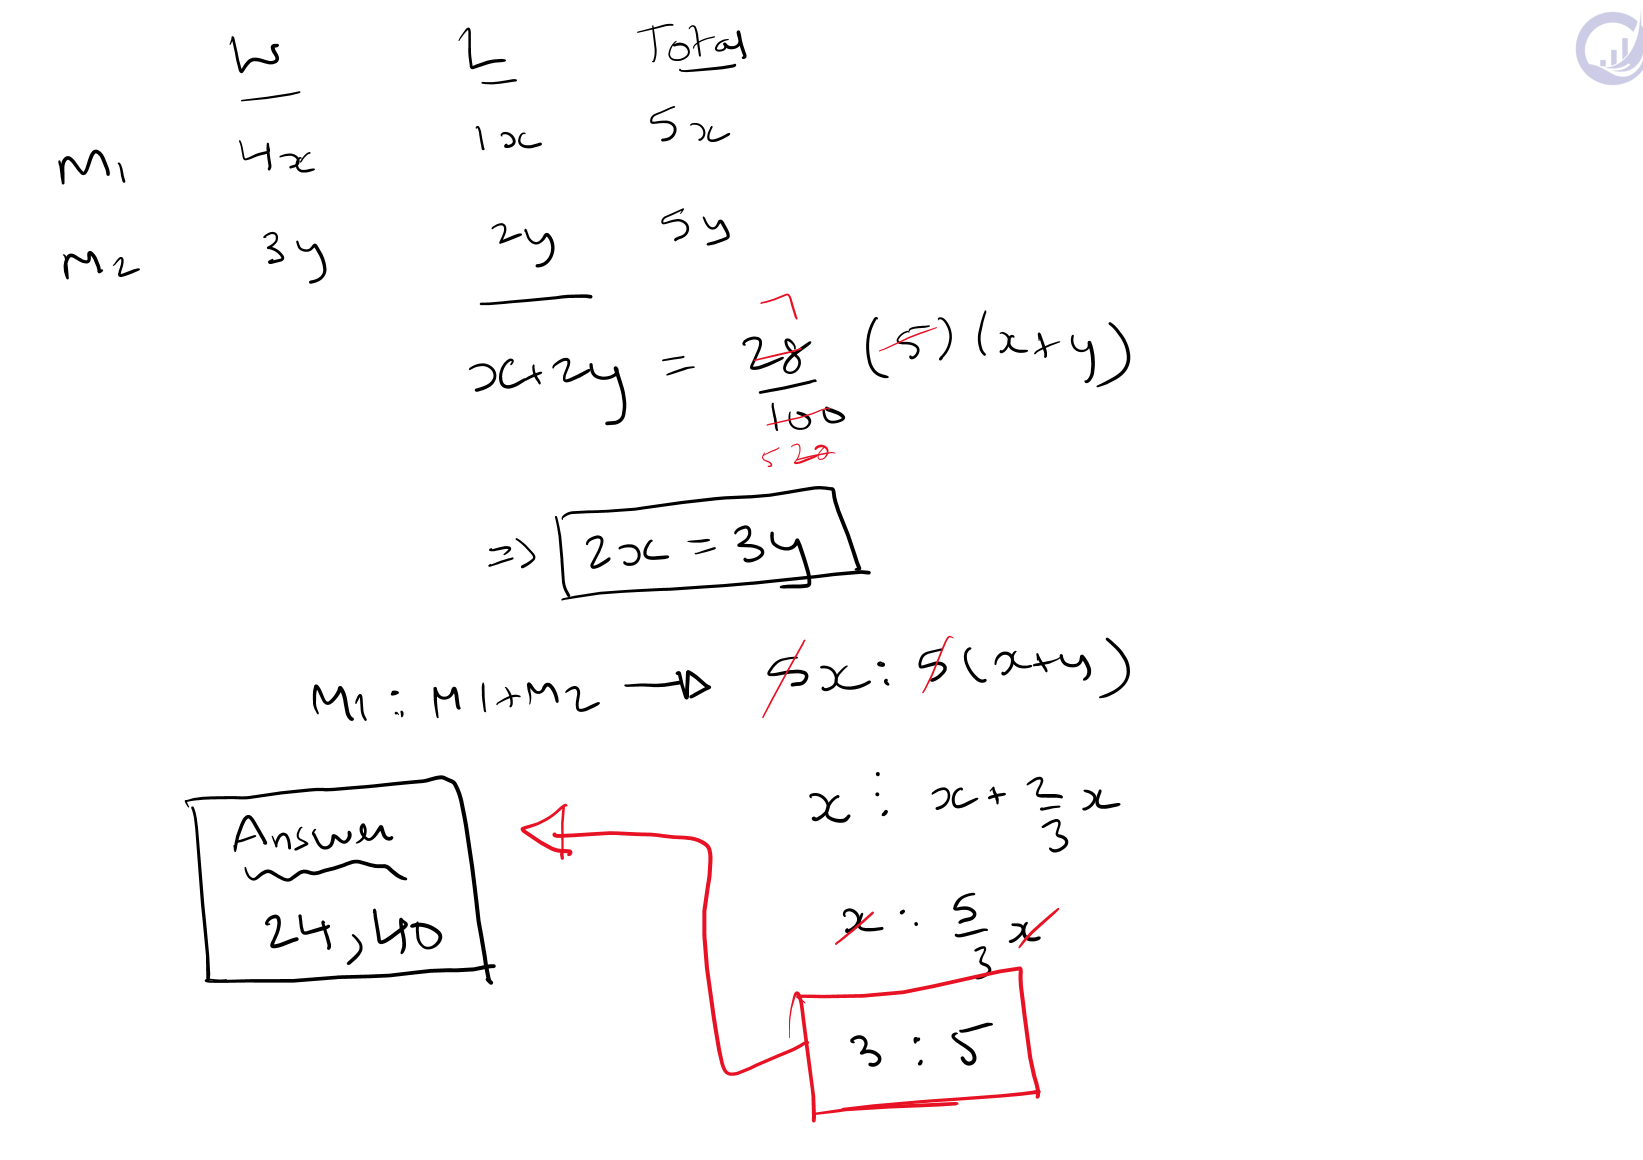 W L Total
M1 4x 1x 5x
M2 3y 2y 5y
7
x+2y = 28/100 (5)(x+y)
5 20
=> 2x = 3y
M1 : M1+M2 → 5x : 5(x+y)
x : x + 2/3 x
x : 5/3 x
3 : 5
Answer
24, 40